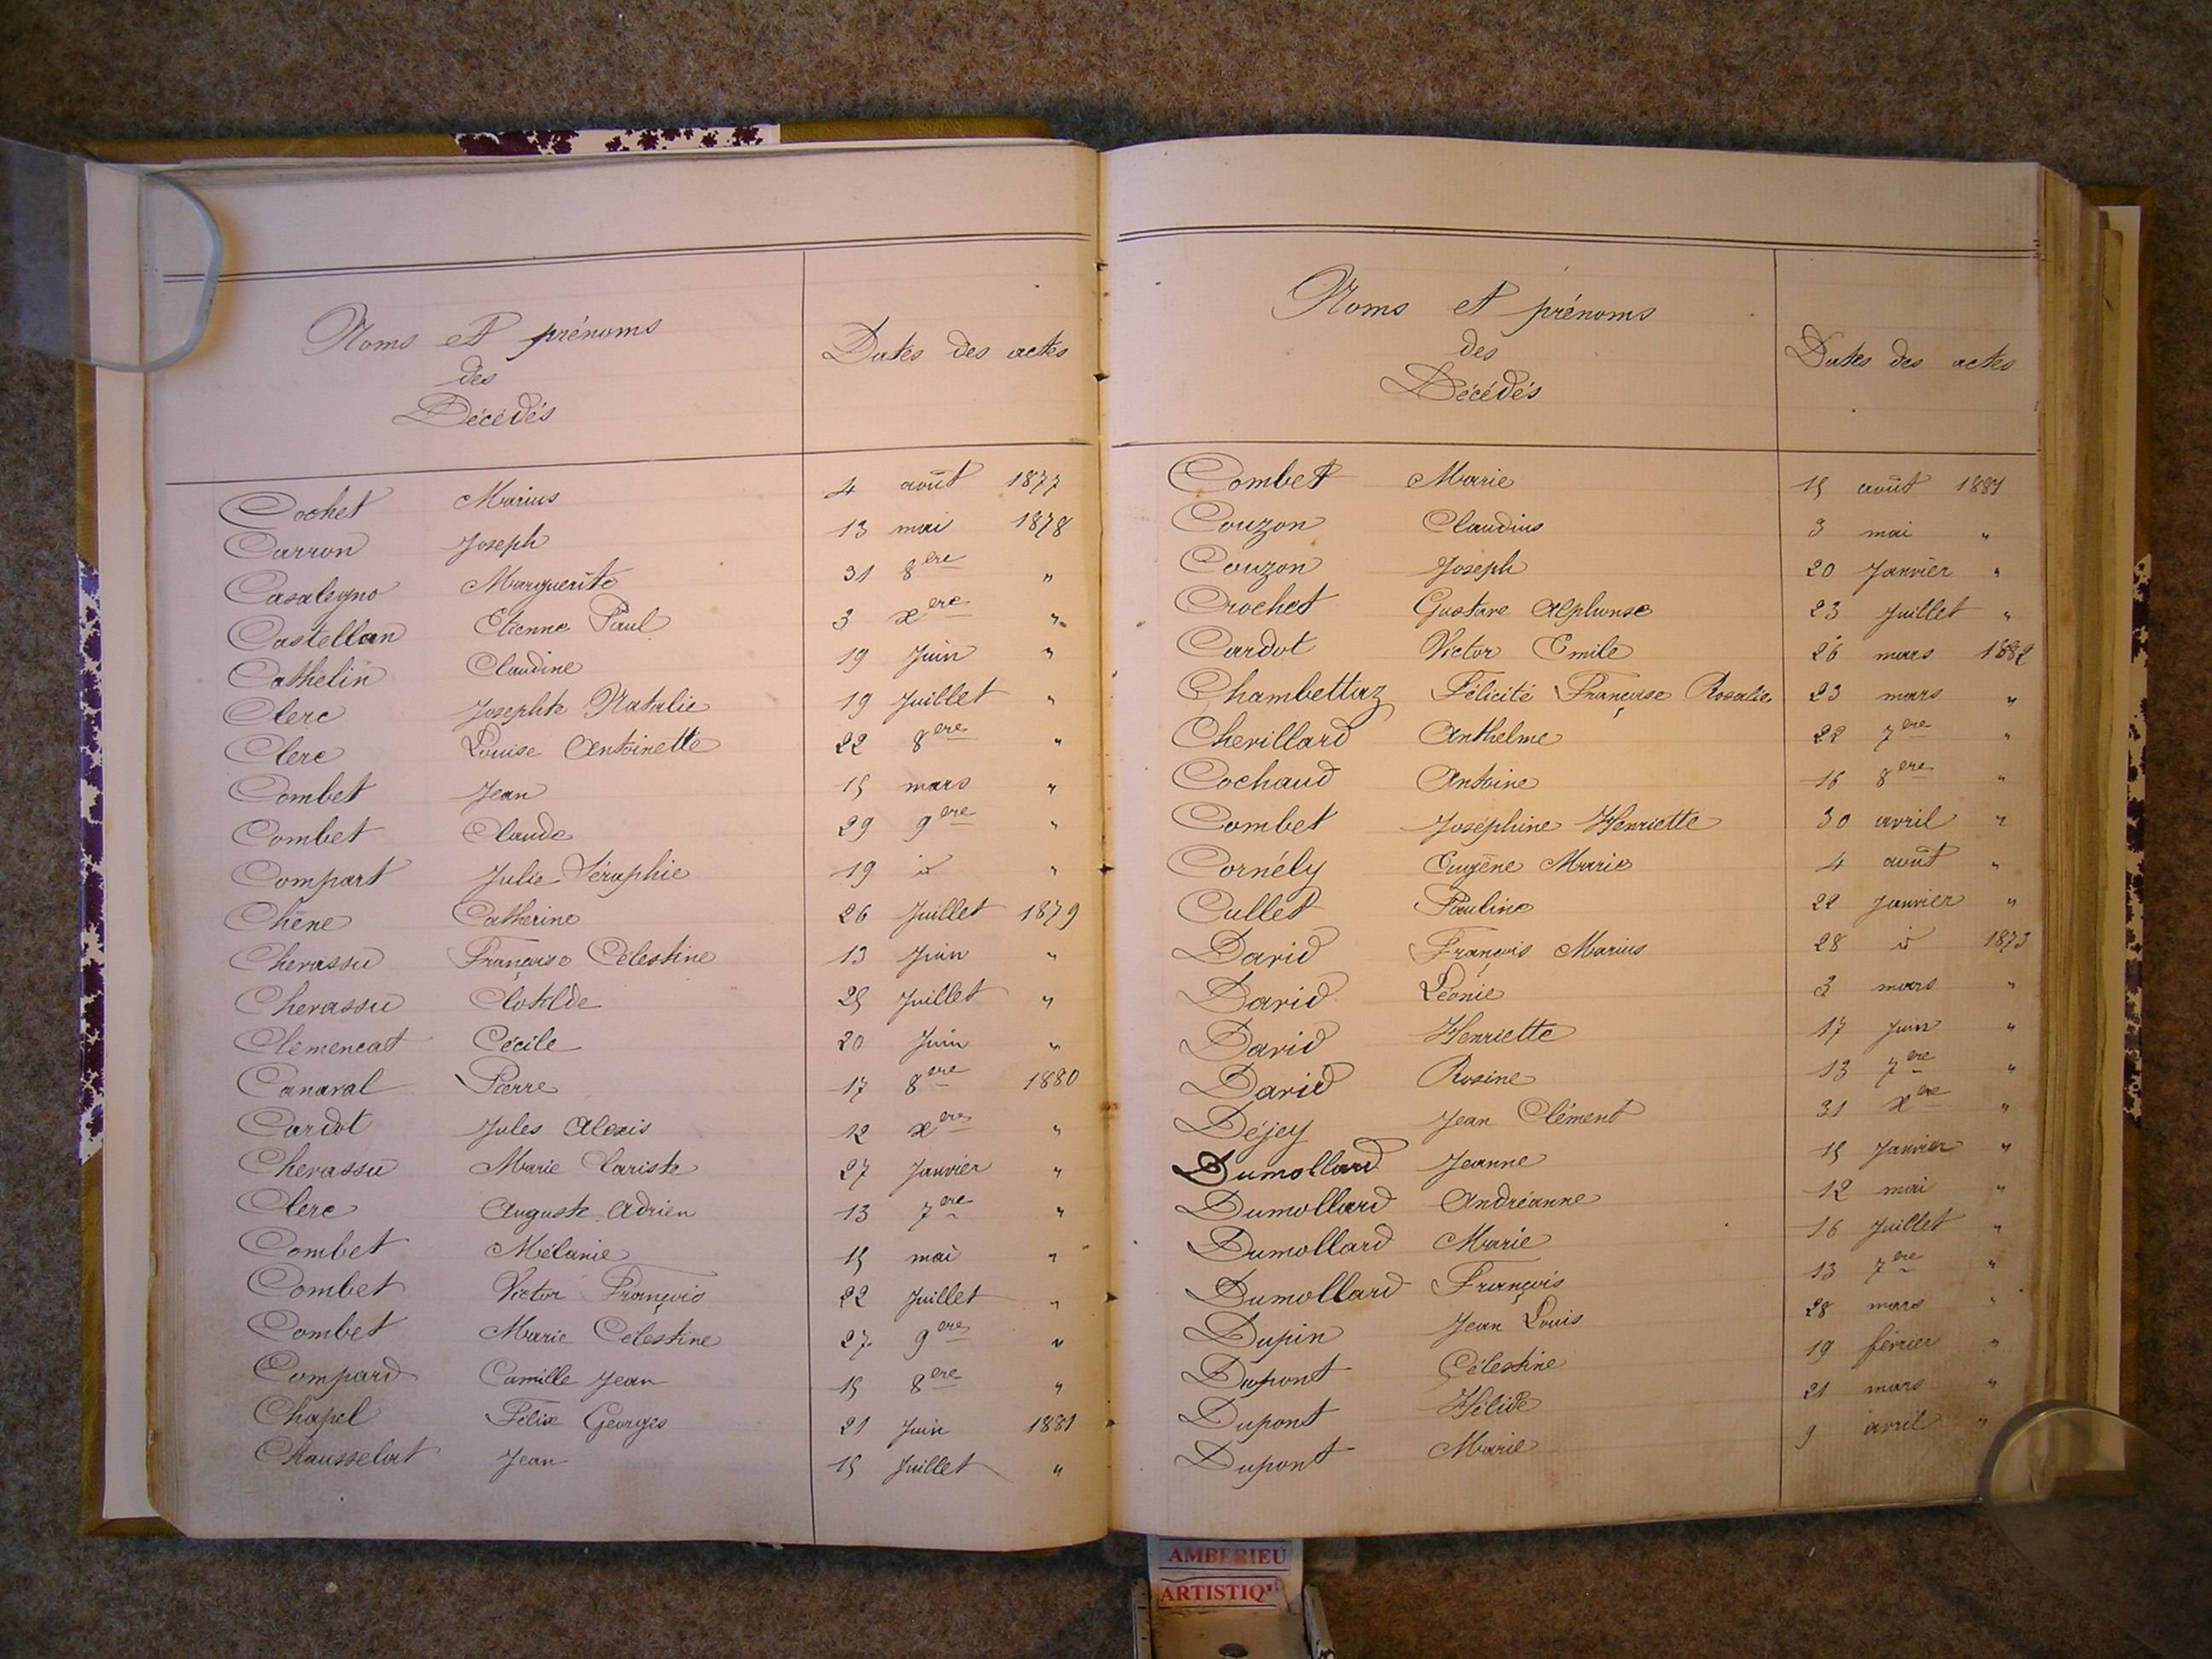 Noms et prénoms
des
Décédés
Dates des actes
Cochet Marius 4 août 1877
Carron Joseph 13 mai 1878
Casalegno Marguerite 31 8ere "
Castellan Etienne Paul 3 xere "
Cathelin Claudine 19 Juin "
Clerc Josephte Natalie 19 Juillet "
Clerc Louise Antoinette 22 8ere "
Combet Jean 15 mars "
Combet Claude 29 9ere "
Compart Julie Séraphie 19 id "
Chêne Catherine 26 Juillet 1879
Chevassu Françoise Célestine 13 Juin "
Chevassu Clotilde 25 Juillet "
Clemencat Cécile 20 Juin "
Canaval Pierre 17 8ere 1880
Cardot Jules Alexis 12 xere "
Chevassu Marie Lariste 27 Janvier "
Clerc Auguste Adrien 13 7ere "
Combet Mélanie 15 mai "
Combet Victor François 22 Juillet "
Combet Marie Célestine 27 9ere "
Compard Camille Jean 15 8ere "
Chapel Félix Georges 21 Juin 1881
Chausselat Jean 15 Juillet "
Noms et prénoms
des
Décédés
Dates des actes
Combet Marie 15 août 1881
Couzon Claudius 3 mai "
Couzon Joseph 20 Janvier "
Crochet Gustave Alphonse 23 Juillet "
Cardot Victor Emile 26 mars 1882
Chambettaz Félicité Françoise Rosalie 23 mars "
Chevillard Anthelme 22 7ere "
Cochaud Antoine 16 8ere "
Combet Joséphine Henriette 30 avril "
Cornély Eugène Marie 4 août "
Cullet Pauline 22 Janvier "
David François Marius 28 id 1873
David Léonie 3 mars "
David Henriette 17 Juin "
David Rosine 13 7ere "
Déjey Jean Clément 31 xere "
Dumollard Jeanne 15 Janvier "
Dumollard Andréanne 12 mai "
Dumollard Marie 16 Juillet "
Dumollard François 13 7ere "
Dupin Jean Louis 28 mars "
Dupont Célestine 19 février "
Dupont Hélide 21 mars "
Dupont Marie 9 avril "
AMBERIEU
ARTISTIQ